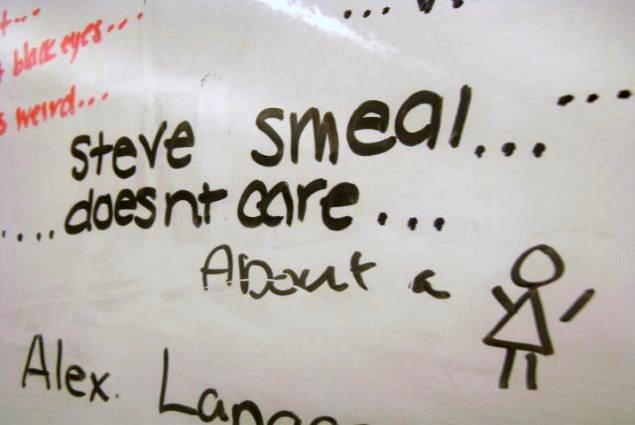 black eyes...
weird...
steve smeal...
....doesnt care...
About a
Alex.